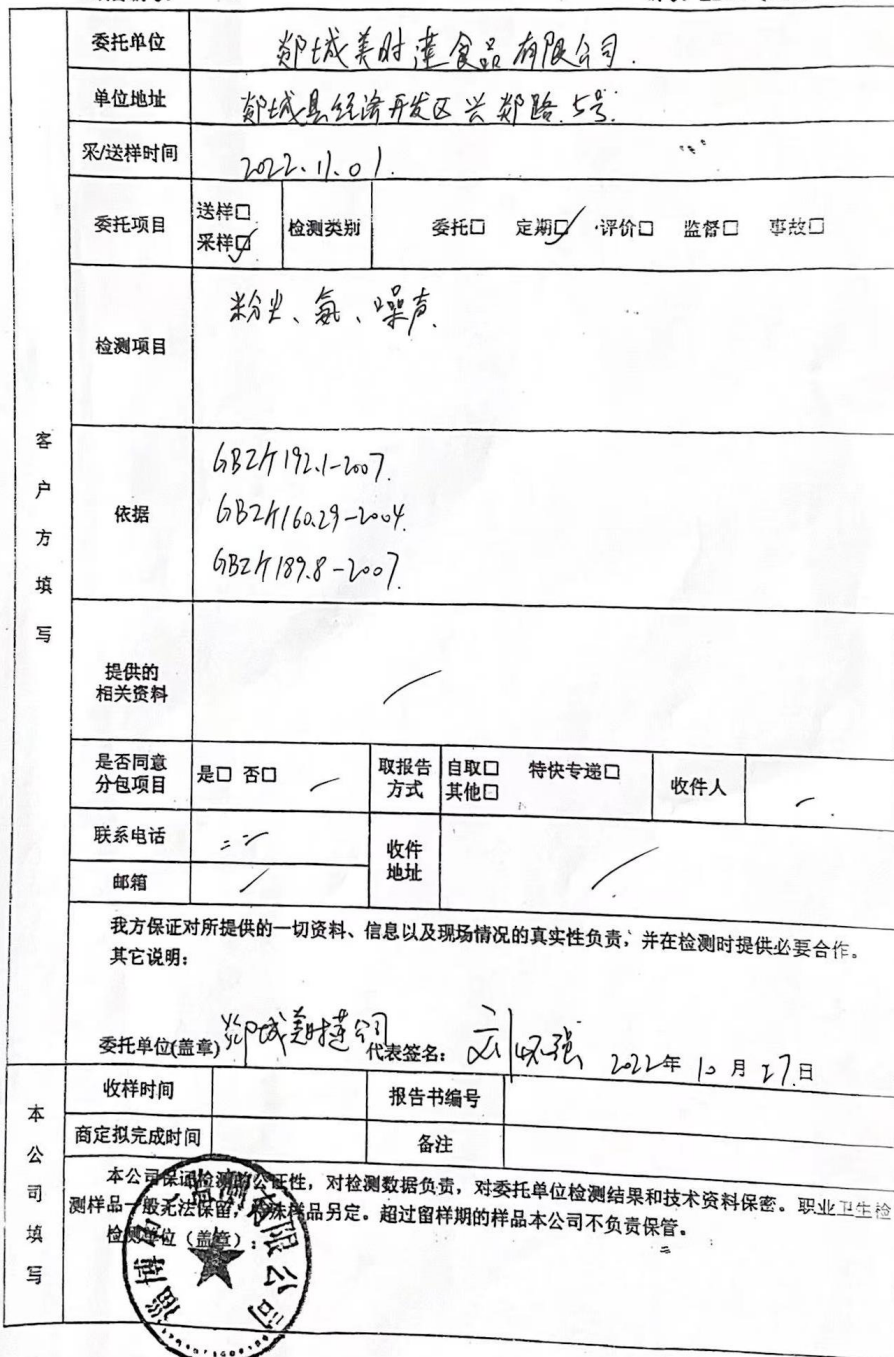 委托单位 郯城美时莲食品有限公司.
单位地址 郯城县经济开发区兴郯路.5号.
采/送样时间 2022.11.01.
委托项目 送样□ 检测类别 委托□ 定期□✓ 评价□ 监督□ 事故□
采样□✓
检测项目 粉尘、氨、噪声.
客户方填写
依据 GBZ/T192.1-2007.
GBZ/T160.29-2004.
GBZ/T189.8-2007.
提供的
相关资料
是否同意
分包项目 是□ 否□ 取报告
方式 自取□ 特快专递□
其他□ 收件人
联系电话 收件
地址
邮箱
我方保证对所提供的一切资料、信息以及现场情况的真实性负责，并在检测时提供必要合作。
其它说明：
委托单位(盖章) 郯城美时莲公司 代表签名： 2022年10月27日
本公司填写
收样时间 报告书编号
商定拟完成时间 备注
本公司保证检测的公正性，对检测数据负责，对委托单位检测结果和技术资料保密。职业卫生检
测样品一般无法保留，特殊样品另定。超过留样期的样品本公司不负责保管。
检测单位（盖章）：